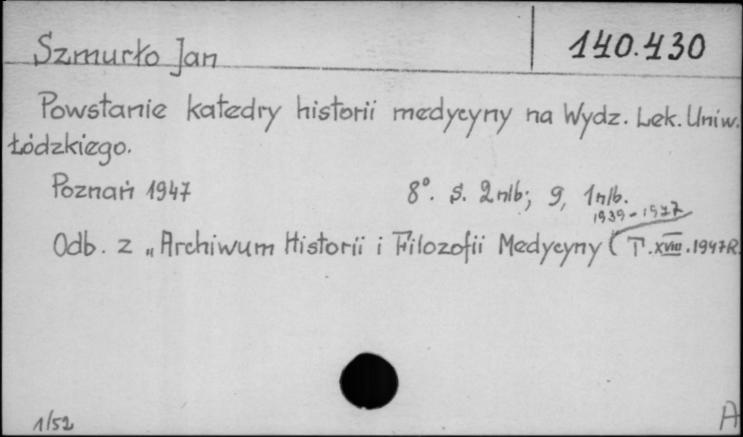 Szmurło Jan 140.430
Powstanie katedry historii medycyny na Wydz. Lek. Uniw.
Łódzkiego.
Poznań 1947 8°. S. 2nlb; 9, 1nlb.
1939-1947
Odb. z „Archiwum Historii i Filozofii Medycyny (T. XVIII. 1947R.
1/52 A